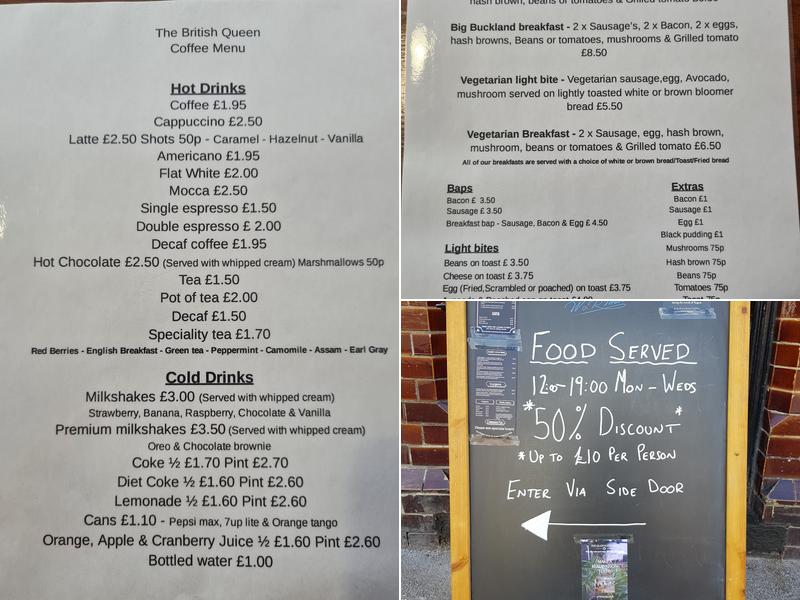 The British Queen
Coffee Menu
Hot Drinks
Coffee £1.95
Cappuccino £2.50
Latte £2.50 Shots 50p - Caramel - Hazelnut - Vanilla
Americano £1.95
Flat White £2.00
Mocca £2.50
Single espresso £1.50
Double espresso £ 2.00
Decaf coffee £1.95
Hot Chocolate £2.50 (Served with whipped cream) Marshmallows 50p
Tea £1.50
Pot of tea £2.00
Decaf £1.50
Speciality tea £1.70
Red Berries - English Breakfast - Green tea - Peppermint - Camomile - Assam - Earl Gray
Cold Drinks
Milkshakes £3.00 (Served with whipped cream)
Strawberry, Banana, Raspberry, Chocolate & Vanilla
Premium milkshakes £3.50 (Served with whipped cream)
Oreo & Chocolate brownie
Coke ½ £1.70 Pint £2.70
Diet Coke ½ £1.60 Pint £2.60
Lemonade ½ £1.60 Pint £2.60
Cans £1.10 - Pepsi max, 7up lite & Orange tango
Orange, Apple & Cranberry Juice ½ £1.60 Pint £2.60
Bottled water £1.00
hash brown, beans or tomatoes & Grilled tomato
Big Buckland breakfast - 2 x Sausage's, 2 x Bacon, 2 x eggs,
hash browns, Beans or tomatoes, mushrooms & Grilled tomato
£8.50
Vegetarian light bite - Vegetarian sausage,egg, Avocado,
mushroom served on lightly toasted white or brown bloomer
bread £5.50
Vegetarian Breakfast - 2 x Sausage, egg, hash brown,
mushroom, beans or tomatoes & Grilled tomato £6.50
All of our breakfasts are served with a choice of white or brown bread/Toast/Fried bread
Baps
Bacon £ 3.50
Sausage £ 3.50
Breakfast bap - Sausage, Bacon & Egg £ 4.50
Light bites
Beans on toast £ 3.50
Cheese on toast £ 3.75
Egg (Fried,Scrambled or poached) on toast £3.75
Extras
Bacon £1
Sausage £1
Egg £1
Black pudding £1
Mushrooms 75p
Hash brown 75p
Beans 75p
Tomatoes 75p
Toast 75p
Food Served
12:00-19:00 Mon - Weds
*50% Discount*
*Up to £10 Per Person
Enter Via Side Door